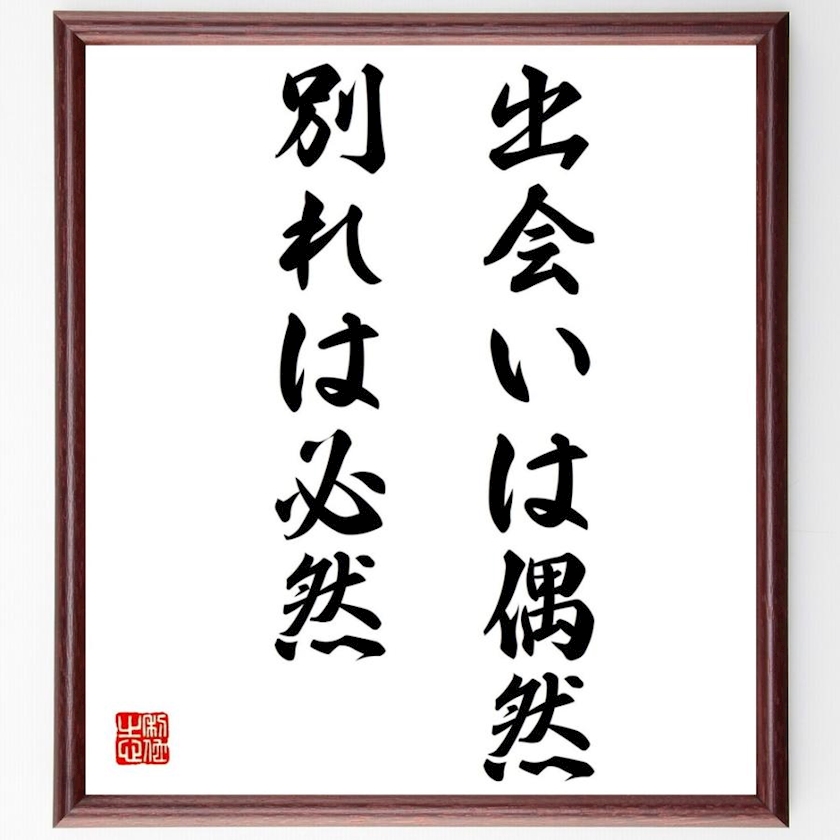 出会いは偶然
別れは必然